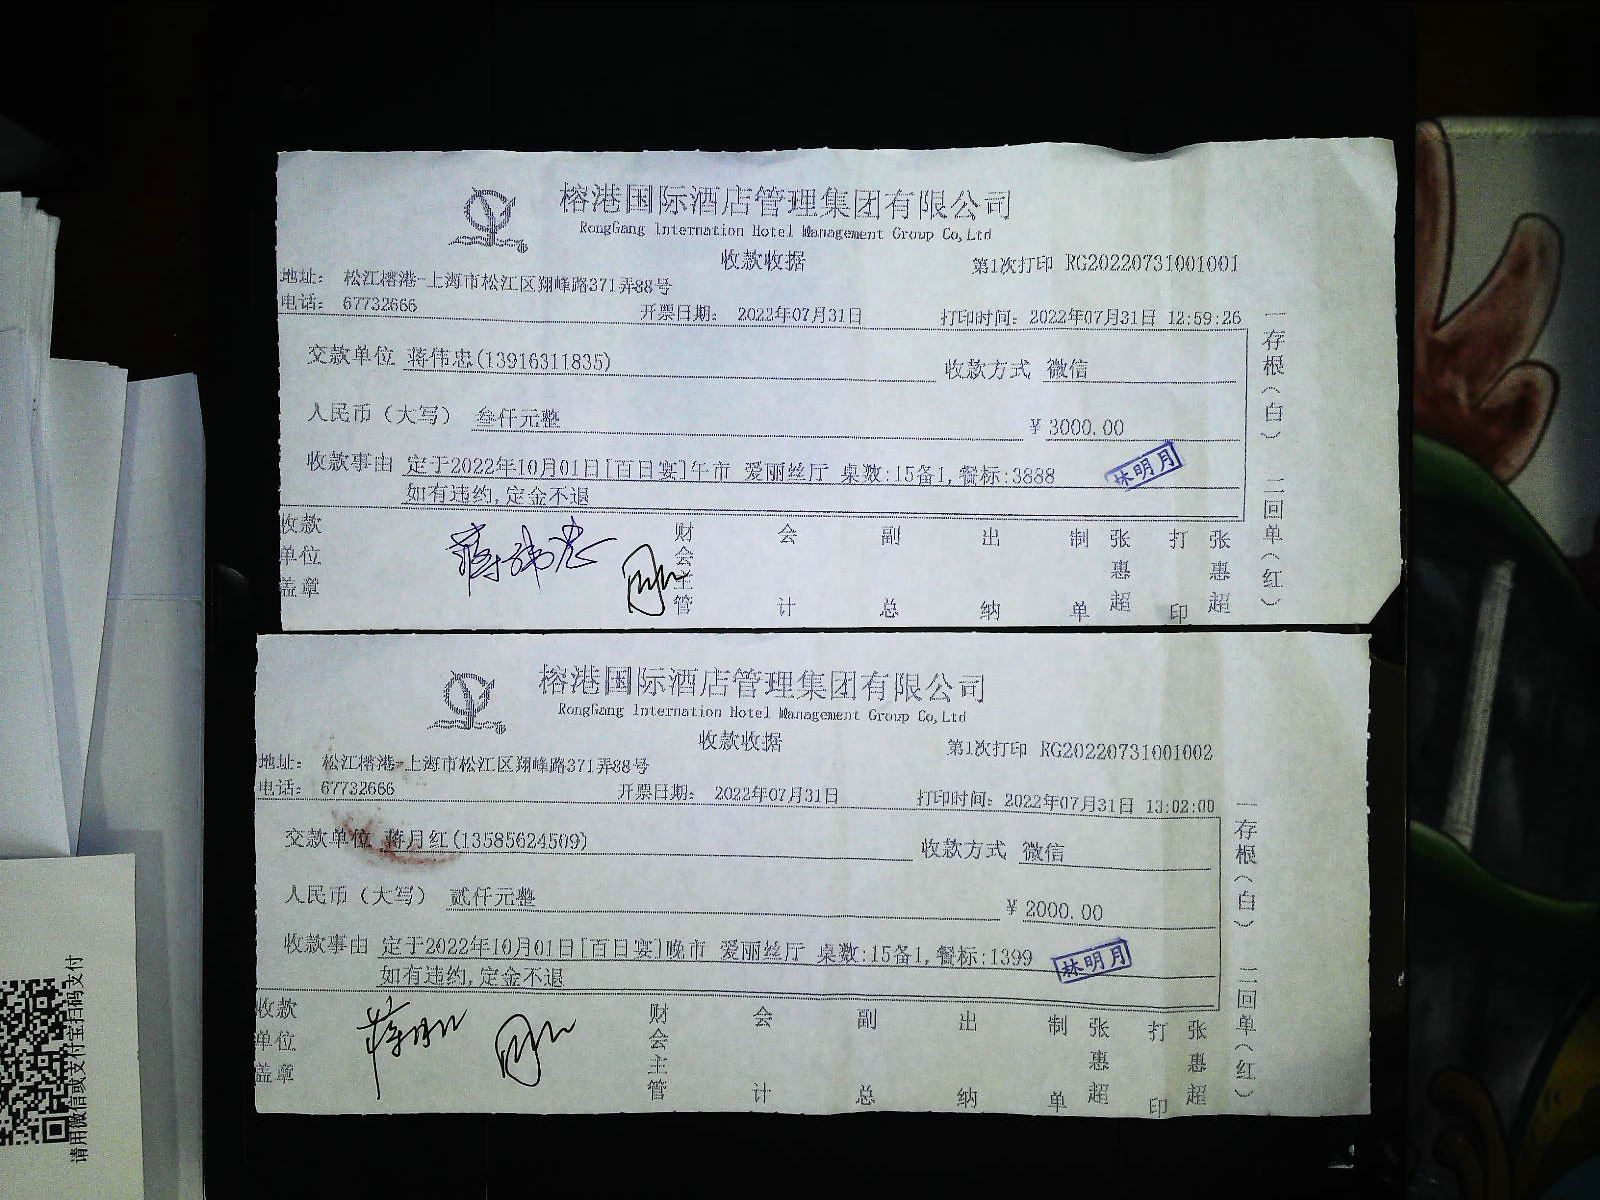 榕港国际酒店管理集团有限公司
RongGang Internation Hotel Management Group Co,Ltd
收款收据
第1次打印 RG20220731001001
地址： 松江榕港-上海市松江区翔峰路371弄88号
电话： 67732666
开票日期： 2022年07月31日
打印时间：2022年07月31日 12:59:26
交款单位 蒋伟忠(13916311835)
收款方式 微信
人民币（大写） 叁仟元整
￥3000.00
收款事由 定于2022年10月01日[百日宴]午市 爱丽丝厅 桌数:15备1,餐标:3888
如有违约,定金不退
林明月
收款单位盖章
蒋伟忠
财会主管 会计 副总 出纳 制单 张惠超 打印 张惠超
一存根（白） 二回单（红）
榕港国际酒店管理集团有限公司
RongGang Internation Hotel Management Group Co,Ltd
收款收据
第1次打印 RG20220731001002
地址： 松江榕港-上海市松江区翔峰路371弄88号
电话： 67732666
开票日期： 2022年07月31日
打印时间：2022年07月31日 13:02:00
交款单位 蒋月红(13585624509)
收款方式 微信
人民币（大写） 贰仟元整
￥2000.00
收款事由 定于2022年10月01日[百日宴]晚市 爱丽丝厅 桌数:15备1,餐标:1399
如有违约,定金不退
林明月
收款单位盖章
财会主管 会计 副总 出纳 制单 张惠超 打印 张惠超
一存根（白） 二回单（红）
请用微信或支付宝扫码支付